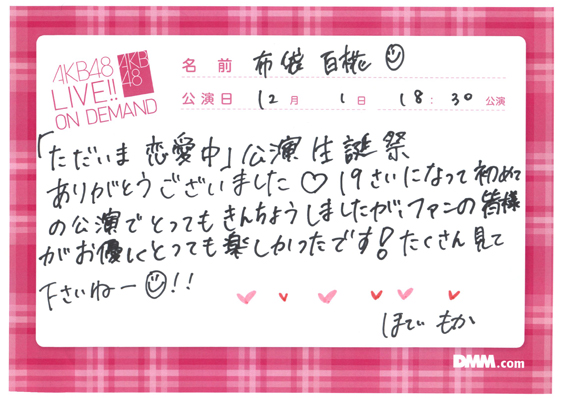 AKB48
LIVE!!
ON DEMAND
AKB
48
名前 布袋 百椛
公演日 12月 1日 18:30公演
「ただいま 恋愛中」公演 生誕祭
ありがとうございました♡19さいになって初めて
の公演でとってもきんちょうしましたが、ファンの皆様
がお優しくとっても楽しかったです!たくさん見て
下さいねー!!
ほてい もか
DMM.com